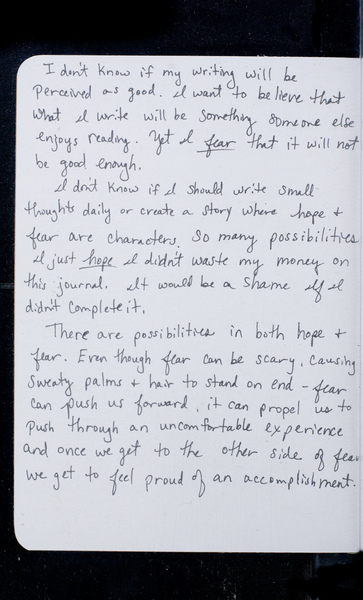 I don't know if my writing will be
perceived as good. I want to believe that
what I write will be something someone else
enjoys reading. Yet I fear that it will not
be good enough.
I don't know if I should write small
thoughts daily or create a story where hope +
fear are characters. So many possibilities
I just hope I didn't waste my money on
this journal. It would be a shame if I
didn't complete it.
There are possibilities in both hope +
fear. Even though fear can be scary, causing
sweaty palms + hair to stand on end - fear
can push us forward, it can propel us to
push through an uncomfortable experience
and once we get to the other side of fear
we get to feel proud of an accomplishment.